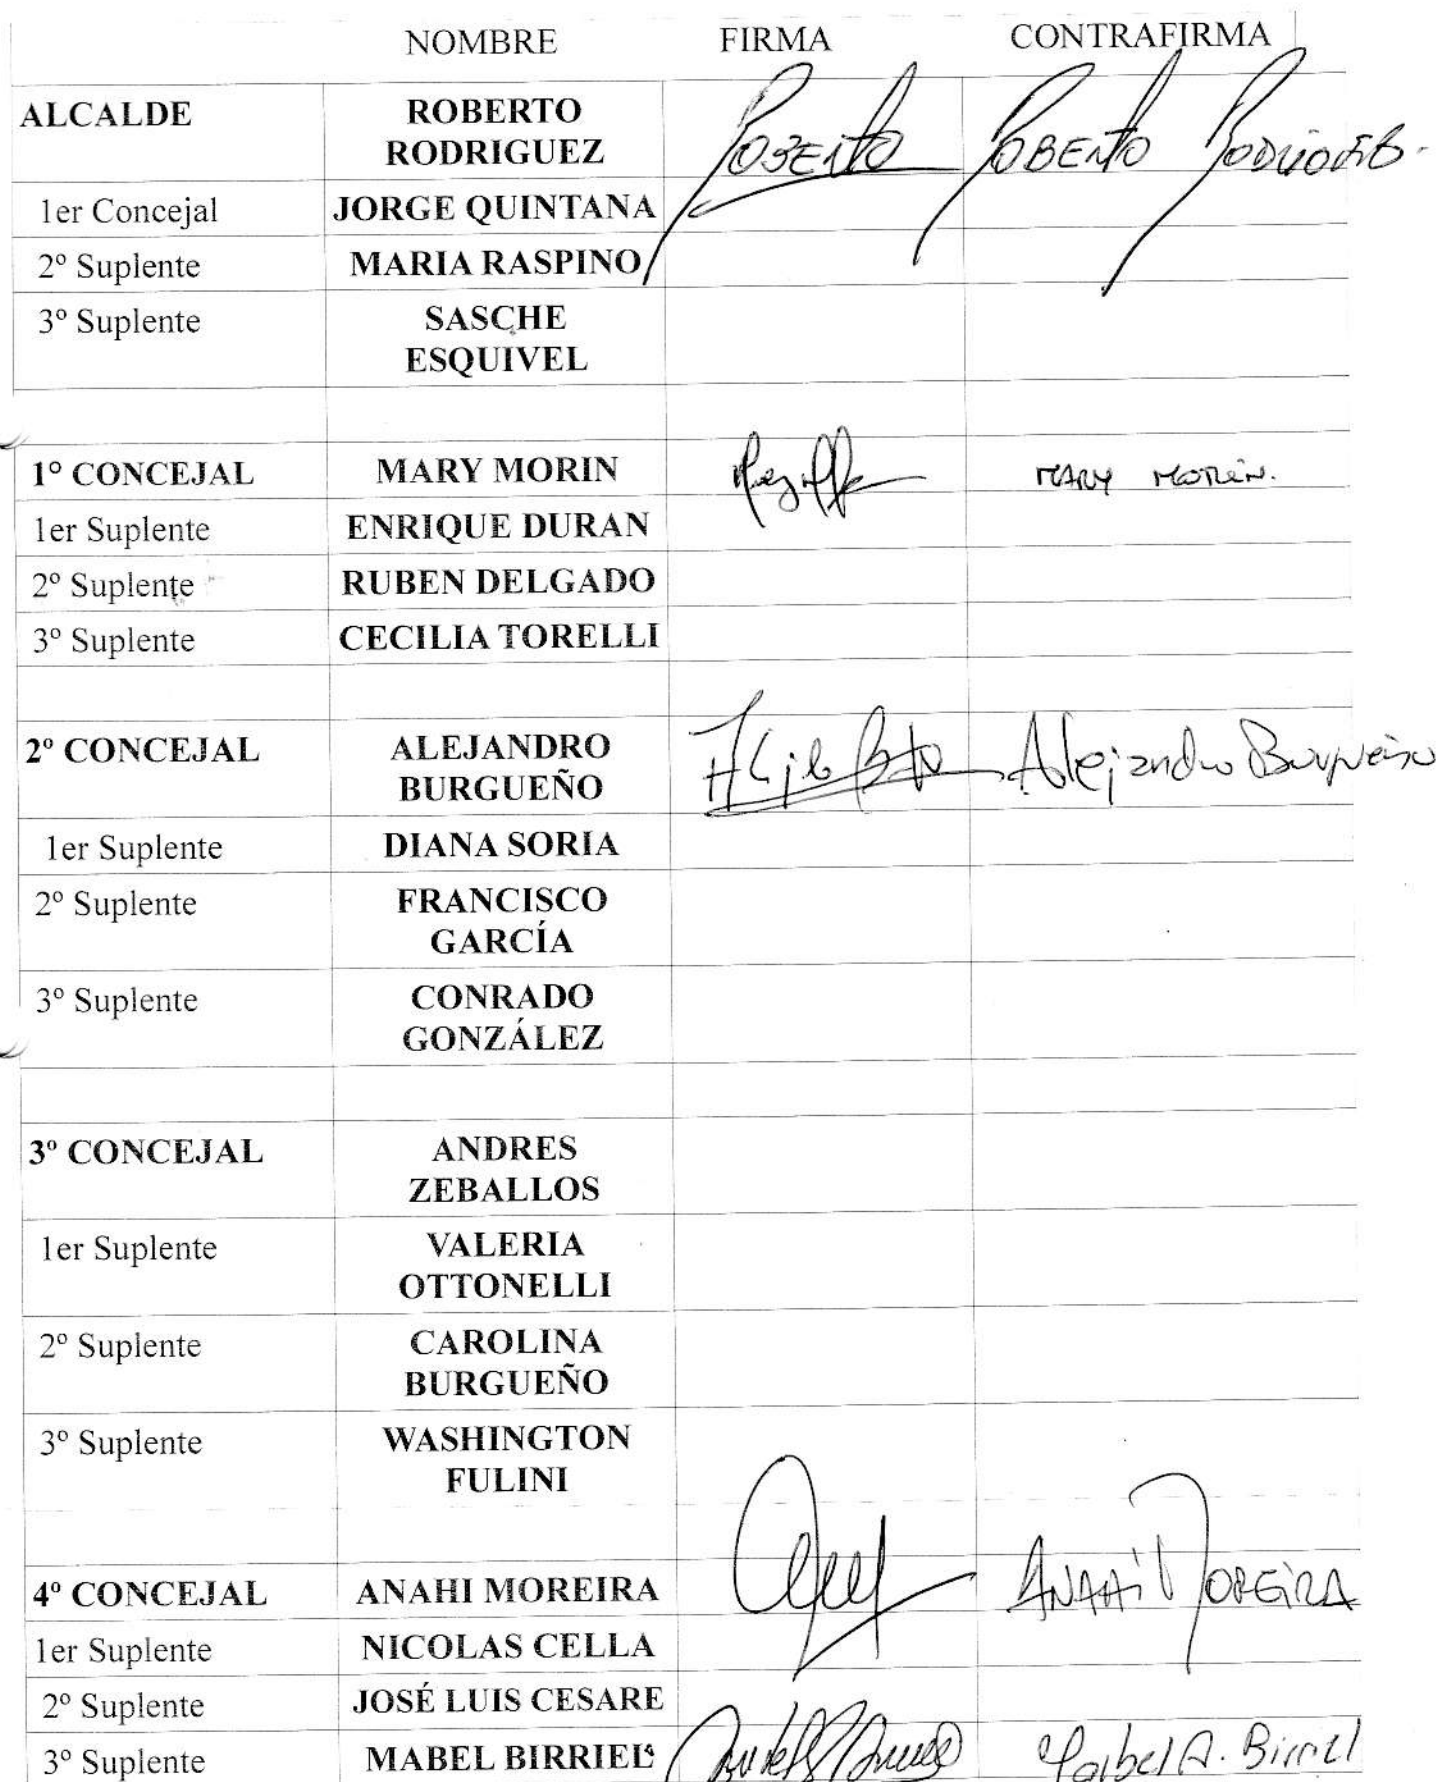 NOMBRE FIRMA CONTRAFIRMA
ALCALDE ROBERTO
RODRIGUEZ ROBERTO ROBERTO
1er Concejal JORGE QUINTANA
2º Suplente MARIA RASPINO
3º Suplente SASCHE
ESQUIVEL
1º CONCEJAL MARY MORIN MARY MORIN.
1er Suplente ENRIQUE DURAN
2º Suplente RUBEN DELGADO
3º Suplente CECILIA TORELLI
2º CONCEJAL ALEJANDRO
BURGUEÑO Alejandro Burgueño
1er Suplente DIANA SORIA
2º Suplente FRANCISCO
GARCÍA
3º Suplente CONRADO
GONZÁLEZ
3º CONCEJAL ANDRES
ZEBALLOS
1er Suplente VALERIA
OTTONELLI
2º Suplente CAROLINA
BURGUEÑO
3º Suplente WASHINGTON
FULINI
4º CONCEJAL ANAHI MOREIRA ANAHI MOREIRA
1er Suplente NICOLAS CELLA
2º Suplente JOSÉ LUIS CESARE
3º Suplente MABEL BIRRIEL Mabel A. Birriel